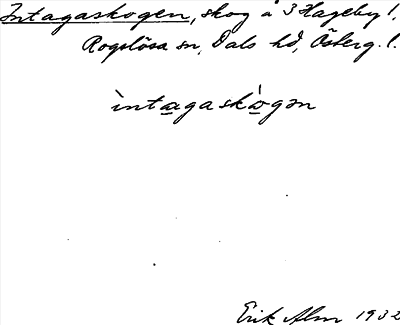 Intagaskogen, skog å 3 Hageby l.
Rogslösa sn, Dals hd, Österg. l.
ìntagaskògən
Erik Alm 1932